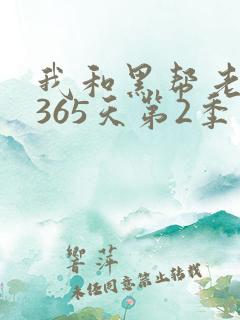 我和黑帮老
365天第2季
响萍
未经同意禁止转载